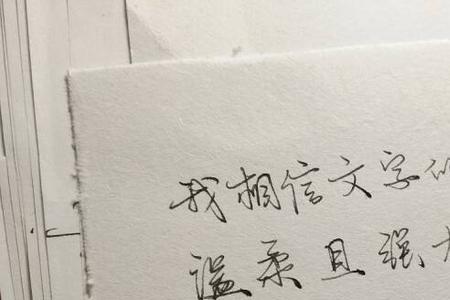 我相信文字
温柔且强